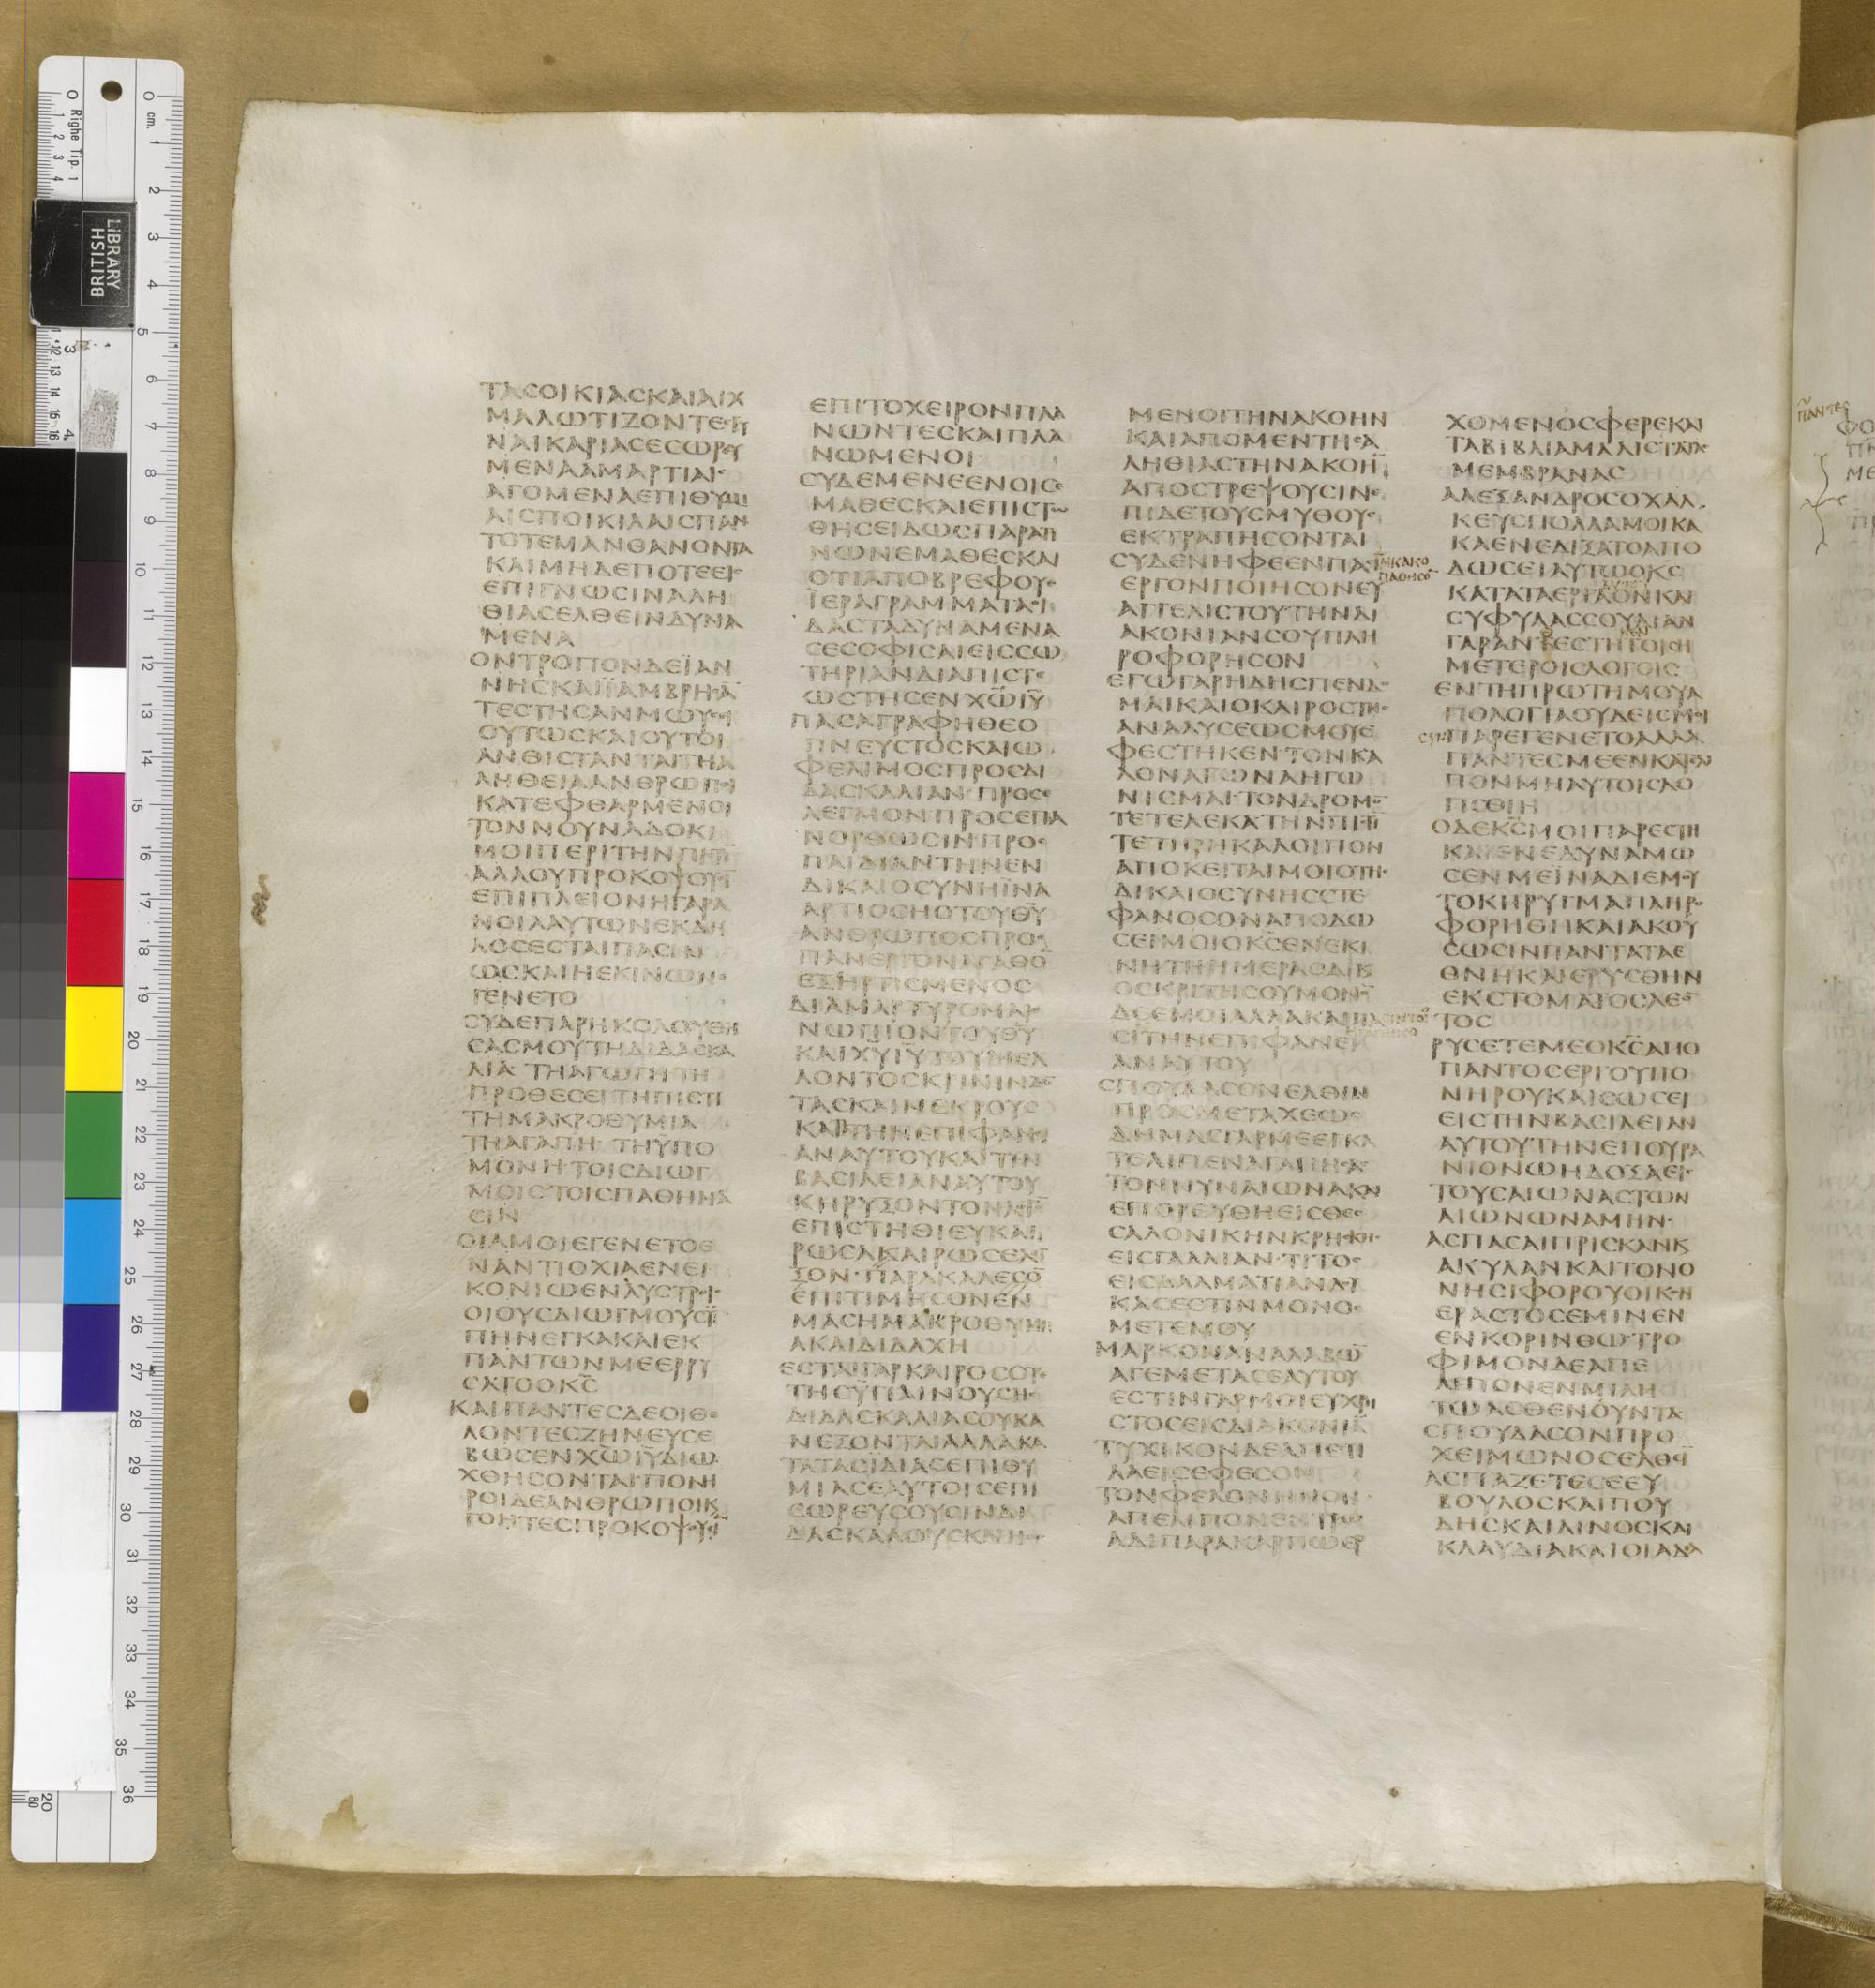 ΤΑСΟΙΚΙΑСΚΑΙΑΙΧ
ΜΑΛΩΤΙΖΟΝΤΕС
ΝΑΙΚΑΡΙΑСΕСΩΡΕΥ
ΜΕΝΑΑΜΑΡΤΙΑΙС
ΑΓΟΜΕΝΑΕΠΙΘΥΜΙ
ΑΙСΠΟΙΚΙΛΑΙСΠΑΝ
ΤΟΤΕΜΑΝΘΑΝΟΝΤΑ
ΚΑΙΜΗΔΕΠΟΤΕΕΙС
ΕΠΙΓΝΩСΙΝΑΛΗ
ΘΙΑСΕΛΘΕΙΝΔΥΝΑ
ΜΕΝΑ
ΟΝΤΡΟΠΟΝΔΕΪΑΝ
ΝΗСΚΑΙΪΑΜΒΡΗС
ΤΕСΤΗСΑΝΜΩΥСΙ
ΟΥΤΩСΚΑΙΟΥΤΟΙ
ΑΝΘΙСΤΑΝΤΑΙΤΗΑ
ΛΗΘΕΙΑΑΝΘΡΩΠΟΙ
ΚΑΤΕΦΘΑΡΜΕΝΟΙ
ΤΟΝΝΟΥΝΑΔΟΚΙ
ΜΟΙΠΕΡΙΤΗΝΠΙСΤΙ
ΑΛΛΟΥΠΡΟΚΟΨΟΥСΙ
ΕΠΙΠΛΕΙΟΝΗΓΑΡΑ
ΝΟΙΑΑΥΤΩΝΕΚΔΗ
ΛΟСΕСΤΑΙΠΑСΙΝ
ΩСΚΑΙΗΕΚΙΝΩΝΕ
ΓΕΝΕΤΟ
СΥΔΕΠΑΡΗΚΟΛΟΥΘΗ
СΑСΜΟΥΤΗΔΙΔΑСΚΑ
ΛΙΑ ΤΗΑΓΩΓΗΤΗ
ΠΡΟΘΕСΕΙΤΗΠΙСΤΙ
ΤΗΜΑΚΡΟΘΥΜΙΑ
ΤΗΑΓΑΠΗ ΤΗΫΠΟ
ΜΟΝΗΤΟΙСΔΙΩΓ
ΜΟΙСΤΟΙСΠΑΘΗΜΑ
СΙΝ
ΟΙΑΜΟΙΕΓΕΝΕΤΟΕ
ΝΑΝΤΙΟΧΙΑΕΝΕΙ
ΚΟΝΙΩΕΝΛΥСΤΡΟΙС
ΟΙΟΥСΔΙΩΓΜΟΥСΫ
ΠΗΝΕΓΚΑΚΑΙΕΚ
ΠΑΝΤΩΝΜΕΕΡΡΥ
СΑΤΟΟΚС
ΚΑΙΠΑΝΤΕСΔΕΟΙΘΕ
ΛΟΝΤΕСΖΗΝΕΥСΕ
ΒΩСΕΝΧΩΙΥΔΙΩ
ΧΘΗСΟΝΤΑΙΠΟΝΗ
ΡΟΙΔΕΑΝΘΡΩΠΟΙΚ
ΓΟΗΤΕСΠΡΟΚΟΨΟΥСΙ
ΕΠΙΤΟΧΕΙΡΟΝΠΛΑ
ΝΩΝΤΕСΚΑΙΠΛΑ
ΝΩΜΕΝΟΙ
СΥΔΕΜΕΝΕΕΝΟΙСΕ
ΜΑΘΕСΚΑΙΕΠΙСΤΩ
ΘΗСΕΙΔΩСΠΑΡΑΤΙ
ΝΩΝΕΜΑΘΕСΚΑΙ
ΟΤΙΑΠΟΒΡΕΦΟΥС
ΪΕΡΑΓΡΑΜΜΑΤΑΟΙ
ΔΑСΤΑΔΥΝΑΜΕΝΑ
СΕСΟΦΙСΑΙΕΙССΩ
ΤΗΡΙΑΝΔΙΑΠΙСΤΕ
ΩСΤΗСΕΝΧΩΙΥ
ΠΑСΑΓΡΑΦΗΘΕΟ
ΠΝΕΥСΤΟСΚΑΙΩ
ΦΕΛΙΜΟСΠΡΟСΔΙ
ΔΑСΚΑΛΙΑΝΠΡΟСΕ
ΛΕΓΜΟΝΠΡΟСΕΠΑ
ΝΟΡΘΩСΙΝΠΡΟС
ΠΑΙΔΙΑΝΤΗΝΕΝ
ΔΙΚΑΙΟСΥΝΗΪΝΑ
ΑΡΤΙΟСΗΟΤΟΥΘΥ
ΑΝΘΡΩΠΟСΠΡΟС
ΠΑΝΕΡΓΟΝΑΓΑΘΟ
ΕΞΗΡΤΙСΜΕΝΟС
ΔΙΑΜΑΡΤΥΡΟΜΑΙΕ
ΝΩΠΙΟΝΤΟΥΘΥ
ΚΑΙΧΥΙΥΤΟΥΜΕΛ
ΛΟΝΤΟСΚΡΙΝΙΝΖΩ
ΤΑСΚΑΙΝΕΚΡΟΥС
ΚΑΙΤΗΝΕΠΙΦΑΝΙ
ΑΝΑΥΤΟΥΚΑΙΤΗΝ
ΒΑСΙΛΕΙΑΝΑΥΤΟΥ
ΚΗΡΥΞΟΝΤΟΝΛΟΓΟ
ΕΠΙСΤΗΘΙΕΥΚΑΙ
ΡΩСΑΚΑΙΡΩСΕΛΕΓ
ΞΟΝΠΑΡΑΚΑΛΕСΟ
ΕΠΙΤΙΜΗСΟΝΕΝ
ΠΑСΗΜΑΚΡΟΘΥΜΙ
ΑΚΑΙΔΙΔΑΧΗ
ΕСΤΑΙΓΑΡΚΑΙΡΟСΟΤΕ
ΤΗСΫΓΙΑΙΝΟΥСΗС
ΔΙΔΑСΚΑΛΙΑСΟΥΚΑ
ΝΕΞΟΝΤΑΙΑΛΛΑΚΑ
ΤΑΤΑСΪΔΙΑСΕΠΙΘΥ
ΜΙΑСΕΑΥΤΟΙСΕΠΙ
СΩΡΕΥСΟΥСΙΝΔΙ
ΔΑСΚΑΛΟΥСΚΝΗΘΟ
ΜΕΝΟΙΤΗΝΑΚΟΗΝ
ΚΑΙΑΠΟΜΕΝΤΗСΑ
ΛΗΘΙΑСΤΗΝΑΚΟΗ
ΑΠΟСΤΡΕΨΟΥСΙΝΕ
ΠΙΔΕΤΟΥСΜΥΘΟΥС
ΕΚΤΡΑΠΗСΟΝΤΑΙ
СΥΔΕΝΗΦΕΕΝΠΑСΙΝ
ΚΑΚΟ
ΠΑΘΗСΟ
ΕΡΓΟΝΠΟΙΗСΟΝΕΥ
ΑΓΓΕΛΙСΤΟΥΤΗΝΔΙ
ΑΚΟΝΙΑΝСΟΥΠΛΗ
ΡΟΦΟΡΗСΟΝ
ΕΓΩΓΑΡΗΔΗСΠΕΝΔΟ
ΜΑΙΚΑΙΟΚΑΙΡΟСΤΗС
ΑΝΑΛΥСΕΩСΜΟΥΕ
ΦΕСΤΗΚΕΝΤΟΝΚΑ
ΛΟΝΑΓΩΝΑΗΓΩ
ΝΙСΜΑΙΤΟΝΔΡΟΜΟ
ΤΕΤΕΛΕΚΑΤΗΝΠΙСΤΙ
ΤΕΤΗΡΗΚΑΛΟΙΠΟΝ
ΑΠΟΚΕΙΤΑΙΜΟΙΟΤΗС
ΔΙΚΑΙΟСΥΝΗССΤΕ
ΦΑΝΟСΟΝΑΠΟΔΩ
СΕΙΜΟΙΟΚСΕΝΕΚΙ
ΝΗΤΗΗΜΕΡΑΟΔΙΚ
ΟСΚΡΙΤΗСΟΥΜΟΝΟ
ΔΕΕΜΟΙΑΛΛΑΚΑΙΠΑСΙΝΤΟΙС
СΙΤΗΝΕΠΙΦΑΝΕΙ
ΑΝΑΥΤΟΥ
СΠΟΥΔΑСΟΝΕΛΘΙΝ
ΠΡΟСΜΕΤΑΧΕΩС
ΔΗΜΑСΓΑΡΜΕΕΓΚΑ
ΤΕΛΙΠΕΝΑΓΑΠΗСΑС
ΤΟΝΝΥΝΑΙΩΝΑΚΑΙ
ΕΠΟΡΕΥΘΗΕΙСΘΕС
СΑΛΟΝΙΚΗΝΚΡΗСΚΗС
ΕΙСΓΑΛΛΙΑΝΤΙΤΟС
ΕΙСΔΑΛΜΑΤΙΑΝΛΟΥ
ΚΑСΕСΤΙΝΜΟΝΟС
ΜΕΤΕΜΟΥ
ΜΑΡΚΟΝΑΝΑΛΑΒΩ
ΑΓΕΜΕΤΑСΕΑΥΤΟΥ
ΕСΤΙΝΓΑΡΜΟΙΕΥΧΡΗ
СΤΟСΕΙСΔΙΑΚΟΝΙΑ
ΤΥΧΙΚΟΝΔΕΑΠΕСΤΙ
ΛΑΕΙСΕΦΕСΟΝ
ΤΟΝΦΕΛΟΝΗΝΟΝ
ΑΠΕΛΙΠΟΝΕΝΤΡΩ
ΑΔΙΠΑΡΑΚΑΡΠΩΕΡ
ΧΟΜΕΝΟСΦΕΡΕΚΑΙ
ΤΑΒΙΒΛΙΑΜΑΛΙСΤΑΤΑС
ΜΕΜΒΡΑΝΑС
ΑΛΕΞΑΝΔΡΟСΟΧΑΛ
ΚΕΥСΠΟΛΛΑΜΟΙΚΑ
ΚΑΕΝΕΔΙΞΑΤΟΑΠΟ
ΔΩСΕΙΑΥΤΩΟΚС
ΚΑΤΑΤΑΕΡΓΑΟΝΚΑΙ
СΥΦΥΛΑССΟΥΛΙΑΝ
ΓΑΡΑΝΤΕСΤΗΤΟΙСΗ
ΜΕΤΕΡΟΙСΛΟΓΟΙС
ΕΝΤΗΠΡΩΤΗΜΟΥΑ
ΠΟΛΟΓΙΑΟΥΔΕΙСΜΟΙ
СΥΜ ΠΑΡΕΓΕΝΕΤΟΑΛΛΑ
ΠΑΝΤΕСΜΕΕΝΚΑΤΕΛΙ
ΠΟΝΜΗΑΥΤΟΙСΛΟ
ΓΙСΘΙΗ
ΟΔΕΚСΜΟΙΠΑΡΕСΤΗ
ΚΑΙΕΝΕΔΥΝΑΜΩ
СΕΝΜΕΪΝΑΔΙΕΜΟΥ
ΤΟΚΗΡΥΓΜΑΠΛΗΡΟ
ΦΟΡΗΘΗΚΑΙΑΚΟΥ
СΩСΙΝΠΑΝΤΑΤΑΕ
ΘΝΗΚΑΙΕΡΥСΘΗΝ
ΕΚСΤΟΜΑΤΟСΛΕΟ
ΤΟС
ΡΥСΕΤΕΜΕΟΚСΑΠΟ
ΠΑΝΤΟСΕΡΓΟΥΠΟ
ΝΗΡΟΥΚΑΙСΩСΕΙ
ΕΙСΤΗΝΒΑСΙΛΕΙΑΝ
ΑΥΤΟΥΤΗΝΕΠΟΥΡΑ
ΝΙΟΝΩΗΔΟΞΑΕΙС
ΤΟΥСΑΙΩΝΑСΤΩΝ
ΑΙΩΝΩΝΑΜΗΝ
ΑСΠΑСΑΙΠΡΙСΚΑΝΚ
ΑΚΥΛΑΝΚΑΙΤΟΝΟ
ΝΗСΙΦΟΡΟΥΟΙΚΟΝ
ΕΡΑСΤΟСΕΜΙΝΕΝ
ΕΝΚΟΡΙΝΘΩΤΡΟ
ΦΙΜΟΝΔΕΑΠΕ
ΛΙΠΟΝΕΝΜΙΛΗ
ΤΩΑСΘΕΝΟΥΝΤΑ
СΠΟΥΔΑСΟΝΠΡΟ
ΧΕΙΜΩΝΟСΕΛΘΙ
ΑСΠΑΖΕΤΕСΕΕΥ
ΒΟΥΛΟСΚΑΙΠΟΥ
ΔΗСΚΑΙΛΙΝΟСΚΑΙ
ΚΛΑΥΔΙΑΚΑΙΟΙΑΔΛ
ΠΑΝΤΕС
LIBRARY
BRITISH
Righe Tip. 1
cm.